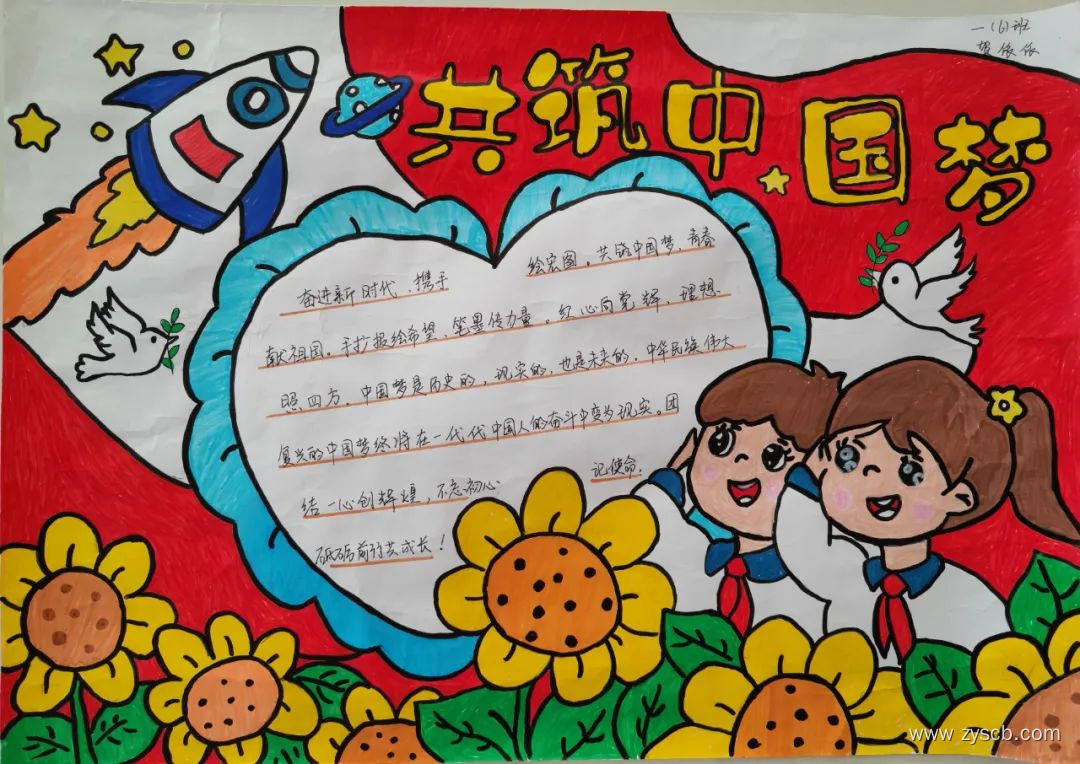 一(6)班
贺依依
共筑中国梦
奋进新时代、携手
绘宏图。共铸中国梦、青春
献祖国。手抄报绘希望、笔墨传力量。红心向党辉、理想
照四方。中国梦是历史的,现实的,也是未来的,中华民族伟大
复兴的中国梦终将在一代代中国人的奋斗中变为现实。团
结一心创辉煌,不忘初心
记使命.
砥砺前行共成长!
www.zyscb.com